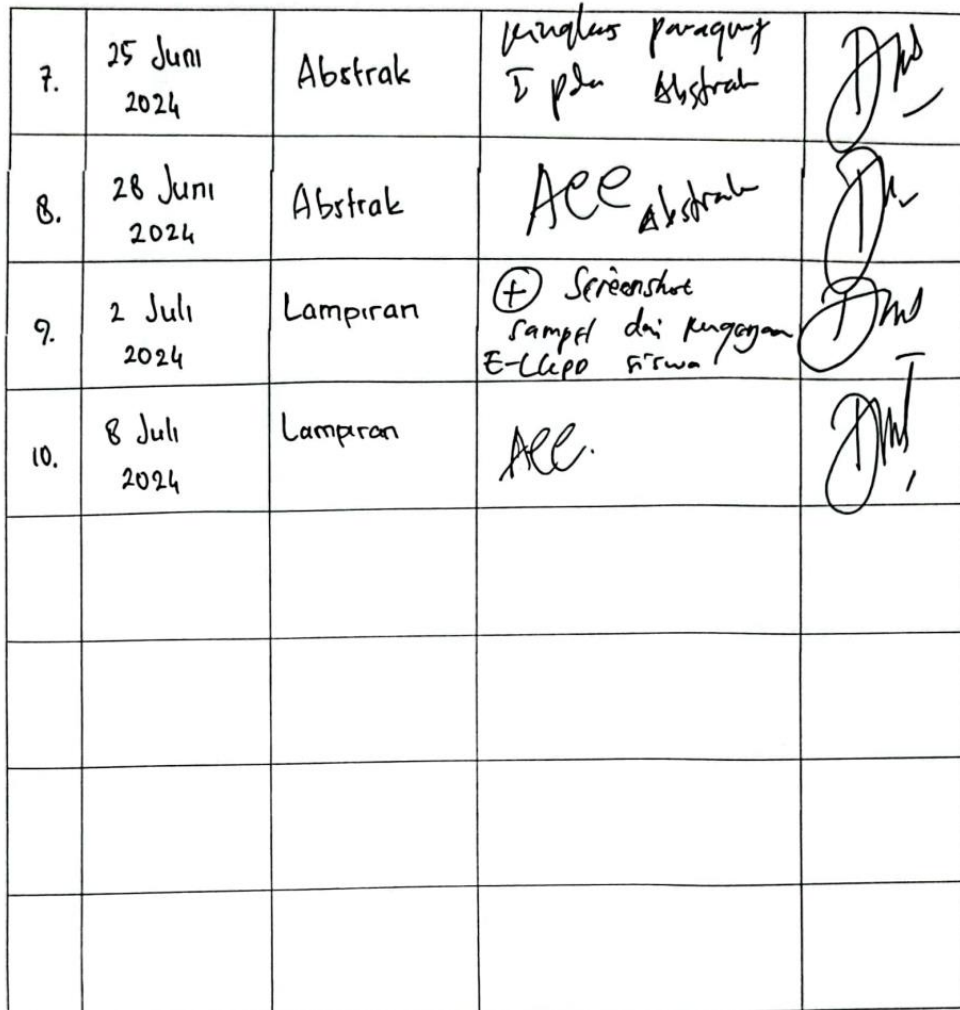 7.
25 Juni
2024
Abstrak
paragraf
I pada Abstrak
8.
28 Juni
2024
Abstrak
ACC Abstrak
9.
2 Juli
2024
Lampiran
+ Screenshot
sampel dari
siswa
10.
8 Juli
2024
Lampiran
ACC.